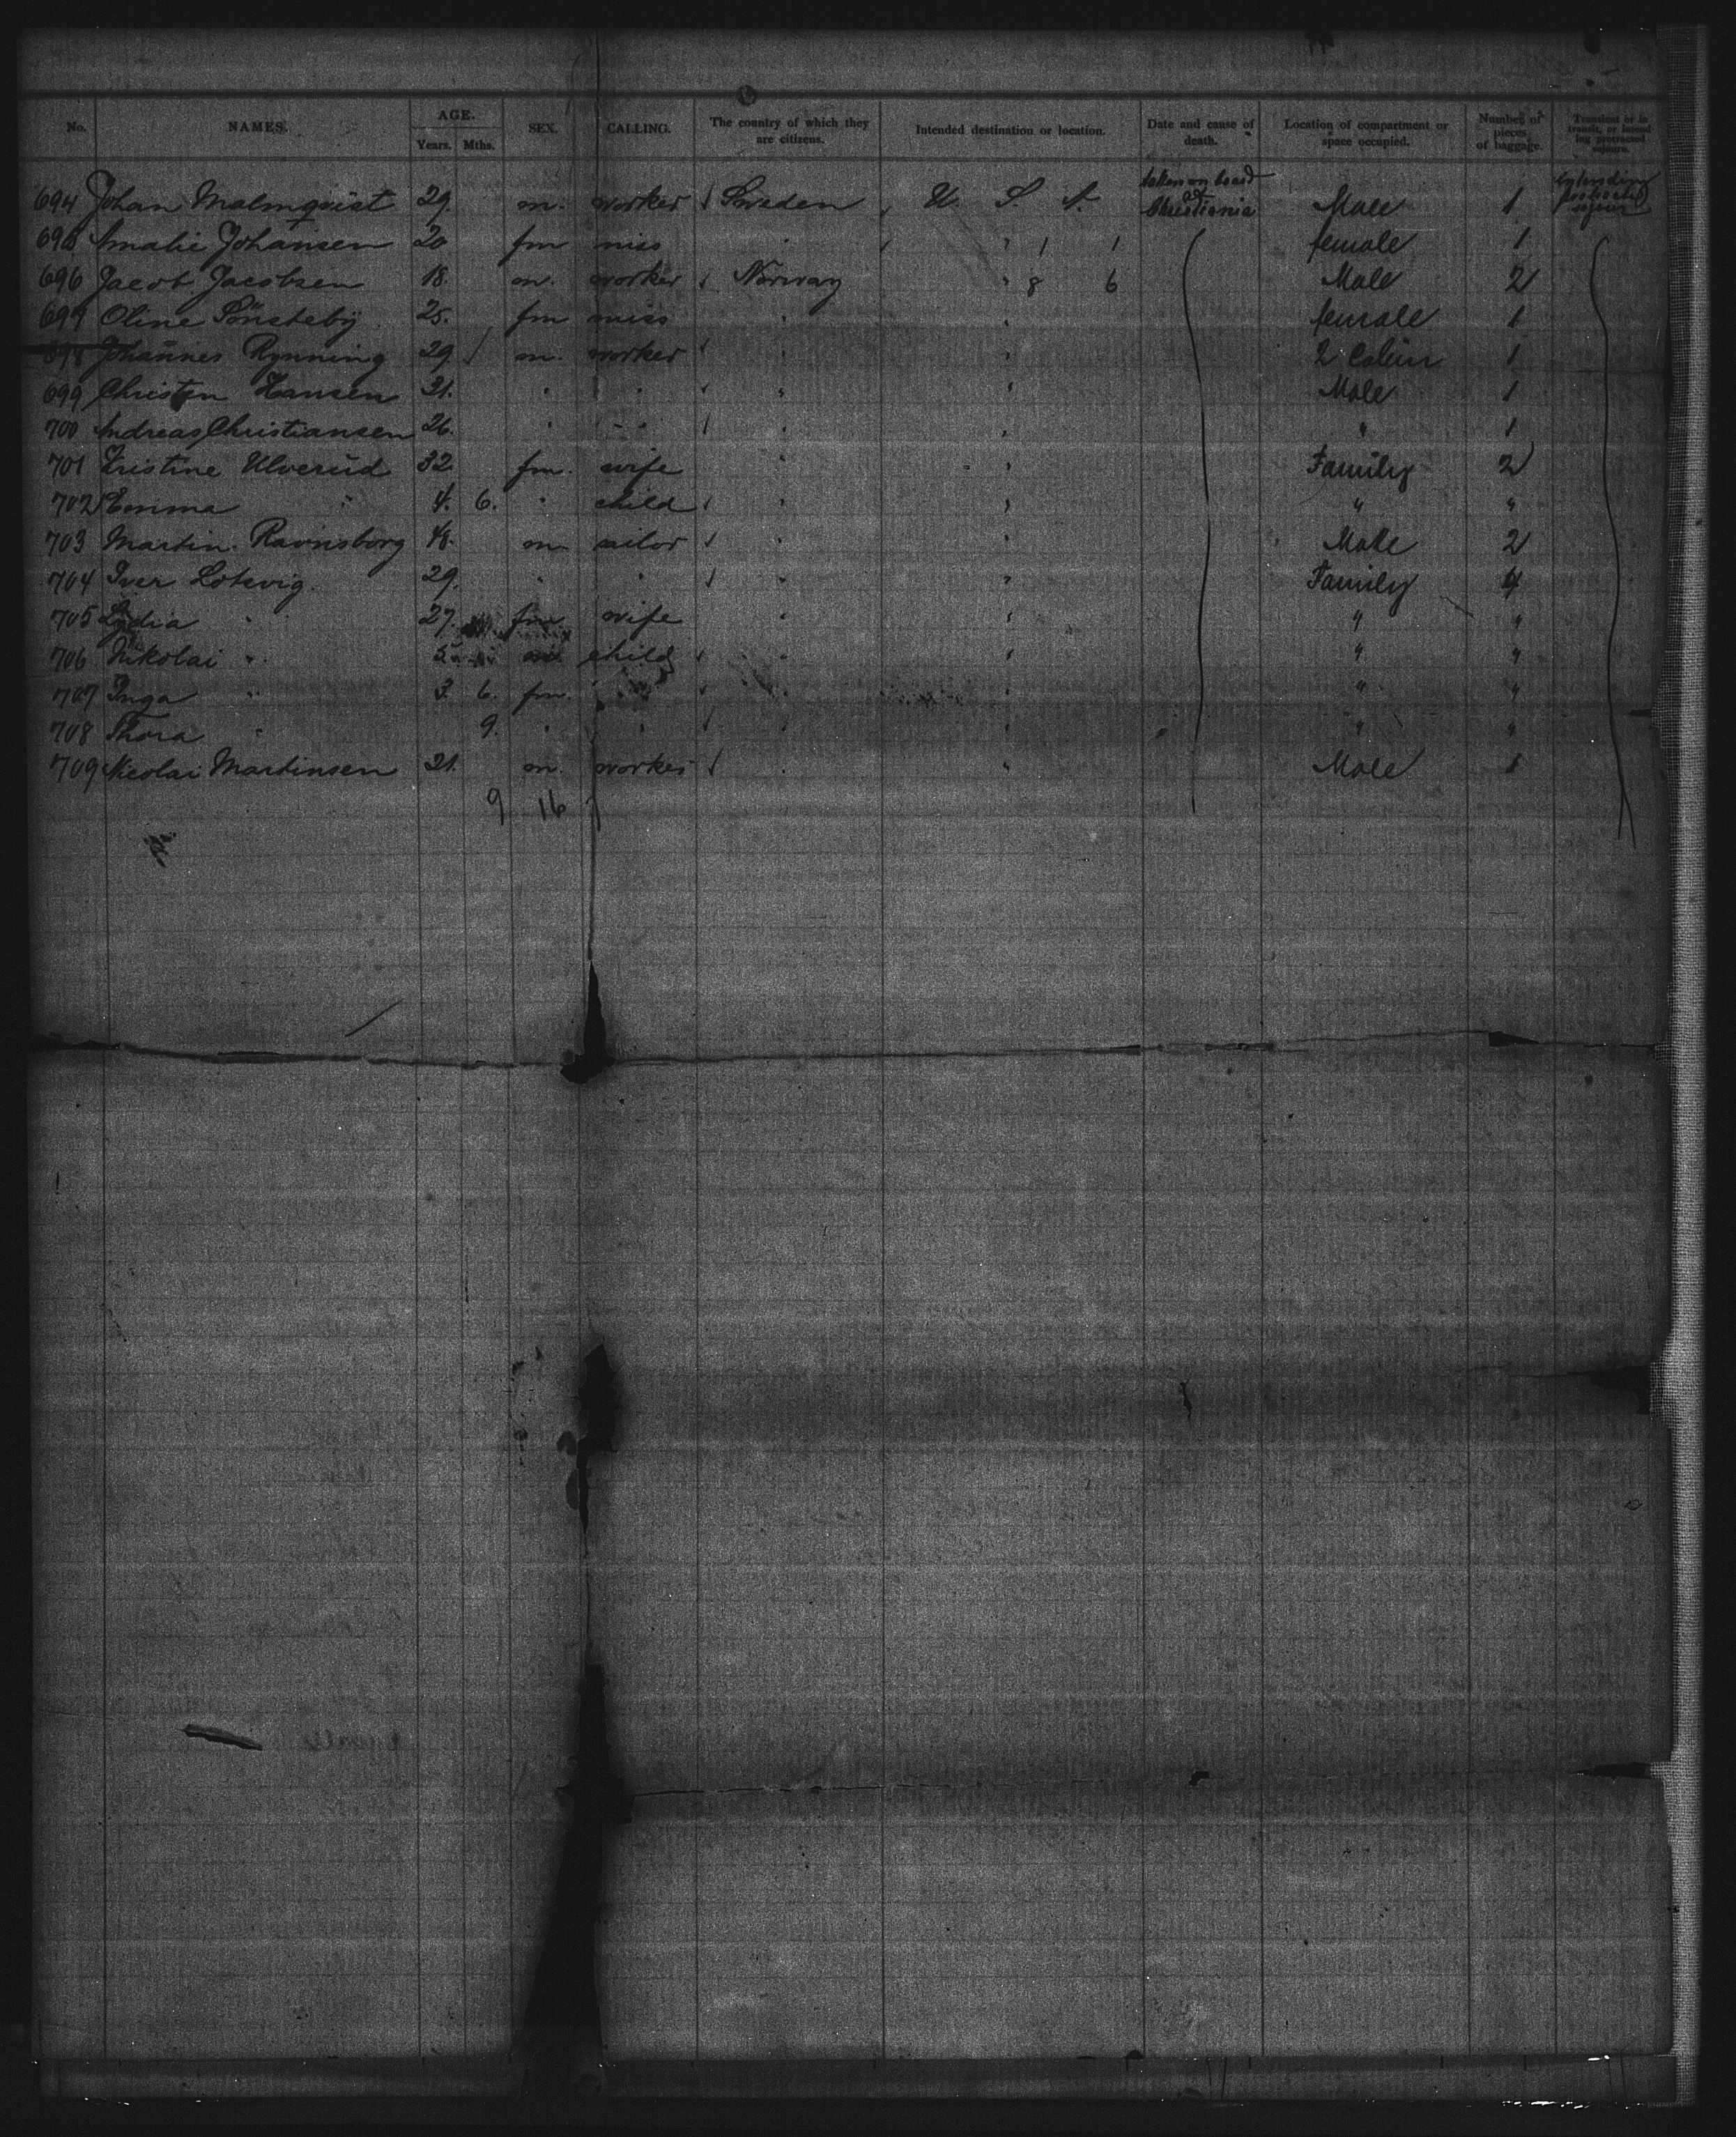 No. NAMES. AGE. Years. Mths. SEX. CALLING. The country of which they are citizens. Intended destination or location. Date and cause of death. Location of compartment or space occupied. Number of pieces of baggage. Transient or in transit, or intending protracted sojourn.
694 Johan Malmqvist 29. m. worker Sweden U. S. A. taken on board at Christiania Male 1 intending protracted sojourn
695 Amalie Johansen 20 fm miss " " 1 1 female 1
696 Jacob Jacobsen 18. m. worker Norway " 8 6 Male 2
697 Oline Sönsteby 25. fm miss " " female 1
698 Johannes Rynning 29 m. worker " " 2 Cabin 1
699 Christen Hansen 31. " " " " Male 1
700 Andreas Christiansen 26. " " " " " 1
701 Kristine Ulverud 32. fm. wife " " Family 2
702 Emma " 4. 6. " child " " " "
703 Martin Ravnsborg 48. m sailor " " Male 2
704 Iver Lotsvig. 29. " " " " Family 4
705 Lydia " 27. fm wife " " " "
706 Nikolai " 5 m child " " " "
707 Inga " 3. 6. fm. " " " " "
708 Thora " 9. " " " " " "
709 Nicolai Martinsen 21. m. worker " " Male 1
9 16 7